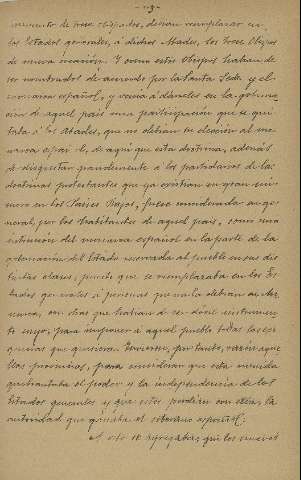 -3-
miento de trece obispados, debian reemplazar en
los Estados generales, á dichos Abades, los trece Obispos
de nueva creación. Y como estos Obispos habian de
ser nombrados de acuerdo por la Santa Sede y el
monarca español, y venia á dárseles en la gober-
ción de aquel pais una participación que se qui-
taba á los Abades, que no debian su elección al mo-
narca español, de aqui que esta disterna, además
de disgustar grandemente á los partidarios de las
doctrinas protestantes que ya existian en gran nú-
mero en los Paises Bajos, fuese considerada en ge-
neral, por los habitantes de aquel pais, como una
intrusión del monarca español en la parte de la
del Estado reservada al pueblo en sus dis-
tintas clases, puesto que se reemplazaba en los Es-
tados generales á personas que nada debian al Mo-
narca, con otras que habian de ser dócil instrumen-
to suyo, para imponer á aquel pueblo todas las car-
gas que quisiera. Tuvieron, por tanto, razón aque-
llas provincias, para considerar que esta medida
quebrantaba el poder y la independencia de los
Estados generales y que estos perdian con ella, la
autoridad que ganaba el soberano español.
A esto se agregaba, que los nuevos